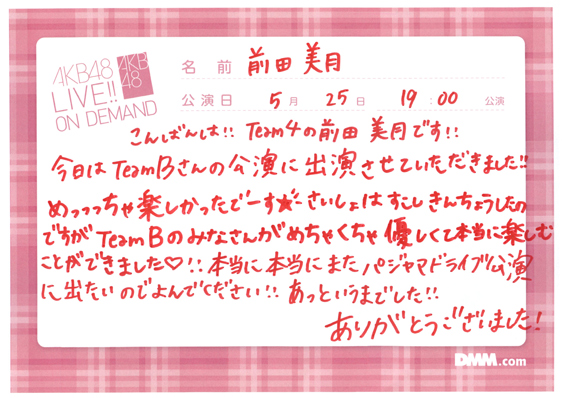 AKB48
LIVE!!
ON DEMAND
AKB
48
名 前 前田 美月
公演日 5月 25日 19:00 公演
こんばんは!! Team4の前田 美月です!!
今日はTeamBさんの公演に出演させていただきました!!
めっっっちゃ楽しかったでーす☆ さいしょはすこしきんちょうしたの
ですがTeamBのみなさんがめちゃくちゃ優しくて本当に楽しむ
ことができました♡!! 本当に本当にまたパジャマドライブ公演
に出たいのでよんでください!! あっというまでした!!
ありがとうございました!
DMM.com